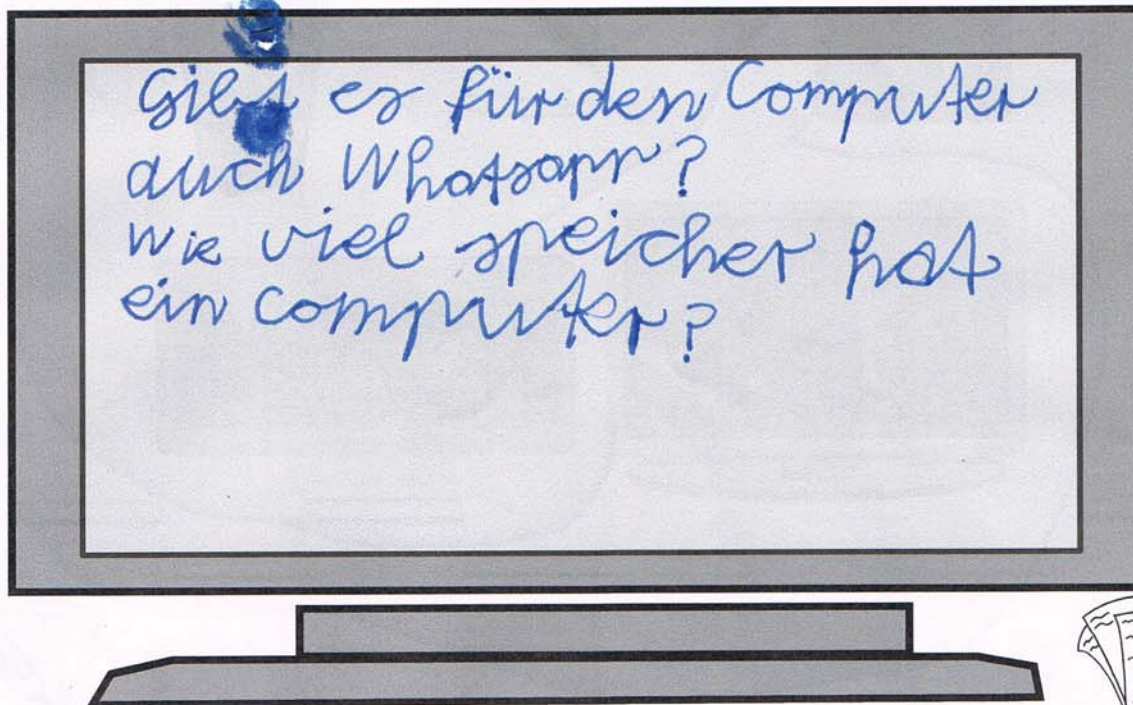 Gibt es für den Computer
auch Whatsapp?
Wie viel speicher hat
ein computer?